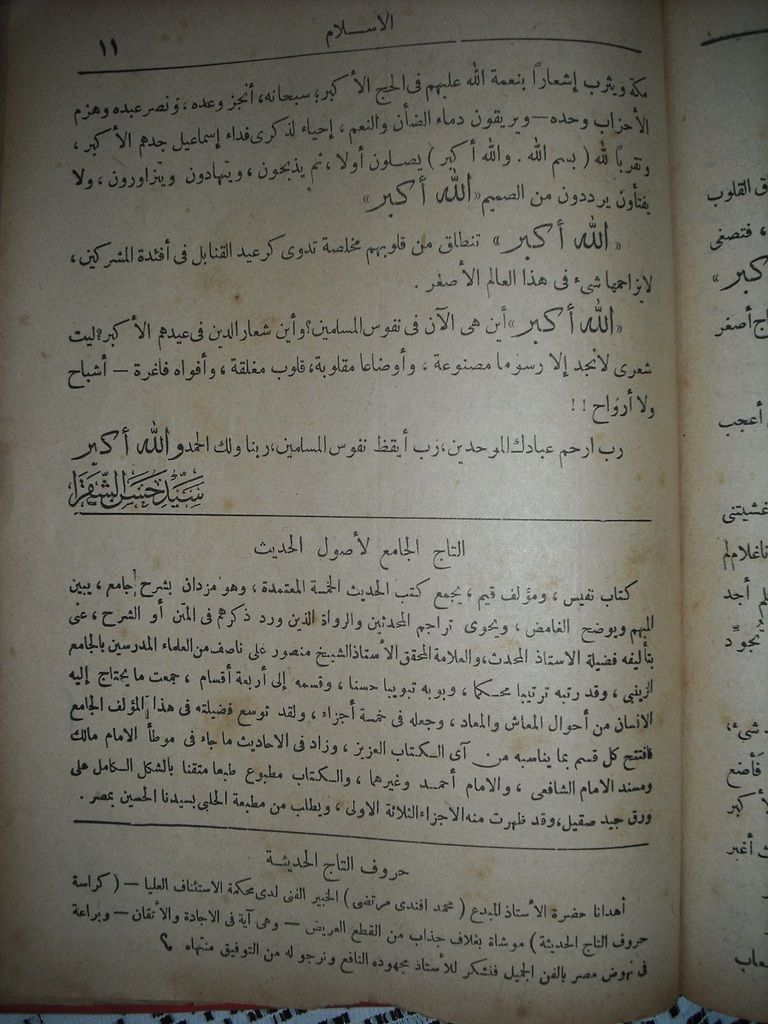 الاسلام
١١
مكة ويثرب إشعاراً بنعمة الله عليهم فى الحج الأكبر؛ سبحانه، أنجز وعده، ونصر عبده وهزم
الأحزاب وحده — ويريقون دماء الضأن والنعم، إحياء لذكرى فداء إسماعيل جدهم الأكبر،
وتقرباً لله (بسم الله. والله أكبر) يصلون أولا، ثم يذبحون، ويتهادون ويتزاورون، ولا
يفتأون يرددون من الصميم «الله أكبر»
«الله أكبر» تنطلق من قلوبهم مخلصة تدوى كرعيد القنابل فى أفئدة المشركين،
لايزاحمها شىء فى هذا العالم الأصغر.
«الله أكبر» أين هى الآن فى نفوس المسلمين؟ وأين شعار الدين فى عيدهم الأكبر؟ ليت
شعرى لانجد إلا رسوما مصنوعة، وأوضاعا مقلوبة، قلوب مغلقة، وأفواه فاغرة — أشباح
ولا أرواح !!
رب ارحم عبادك الموحدين، رب أيقظ نفوس المسلمين، ربنا ولك الحمد والله أكبر
سيد حسن الشقرا
التاج الجامع لأصول الحديث
كتاب نفيس، ومؤلف قيم، يجمع كتب الحديث الخمسة المعتمدة، وهو مزدان بشرح جامع، يبين
المبهم ويوضح الغامض، ويحوى تراجم المحدثين والرواة الذين ورد ذكرهم فى المتن أو الشرح، عنى
بتأليفه فضيلة الاستاذ المحدث، والعلامة المحقق الأستاذ الشيخ منصور على ناصف من العلماء المدرسين بالجامع
الزينبى، وقد رتبه ترتيبا محكما، وبوبه تبويبا حسنا، وقسمه إلى أربعة أقسام، جمعت ما يحتاج إليه
الانسان من أحوال المعاش والمعاد، وجعله فى خمسة أجزاء، ولقد توسع فضيلته فى هذا المؤلف الجامع
فافتتح كل قسم بما يناسبه من آى الكتاب العزيز، وزاد فى الاحاديث ما جاء فى موطأ الامام مالك
ومسند الامام الشافعى، والامام أحمد وغيرهما، والكتاب مطبوع طبعا متقنا بالشكل الكامل على
ورق جيد صقيل، وقد ظهرت منه الاجزاء الثلاثة الاولى، ويطلب من مطبعة الحلبى بسيدنا الحسين بمصر.
حروف التاج الحديثة
أهدانا حضرة الأستاذ المبدع (محمد افندى مرتضى) الخبير الفنى لدى محكمة الاستئناف العليا — (كراسة
حروف التاج الحديثة) موشاة بغلاف جذاب من القطع العريض — وهى آية فى الاجادة والأتقان — وبراعة
فى نهوض مصر بالفن الجميل فنشكر للأستاذ مجهوده النافع ونرجو له من التوفيق منتهاه
ق القلوب
، فتصغى
كبر»
اج أصغر
أعجب
غشيتنى
لم أجد
شىء،
فأضع
أكبر
أغبر